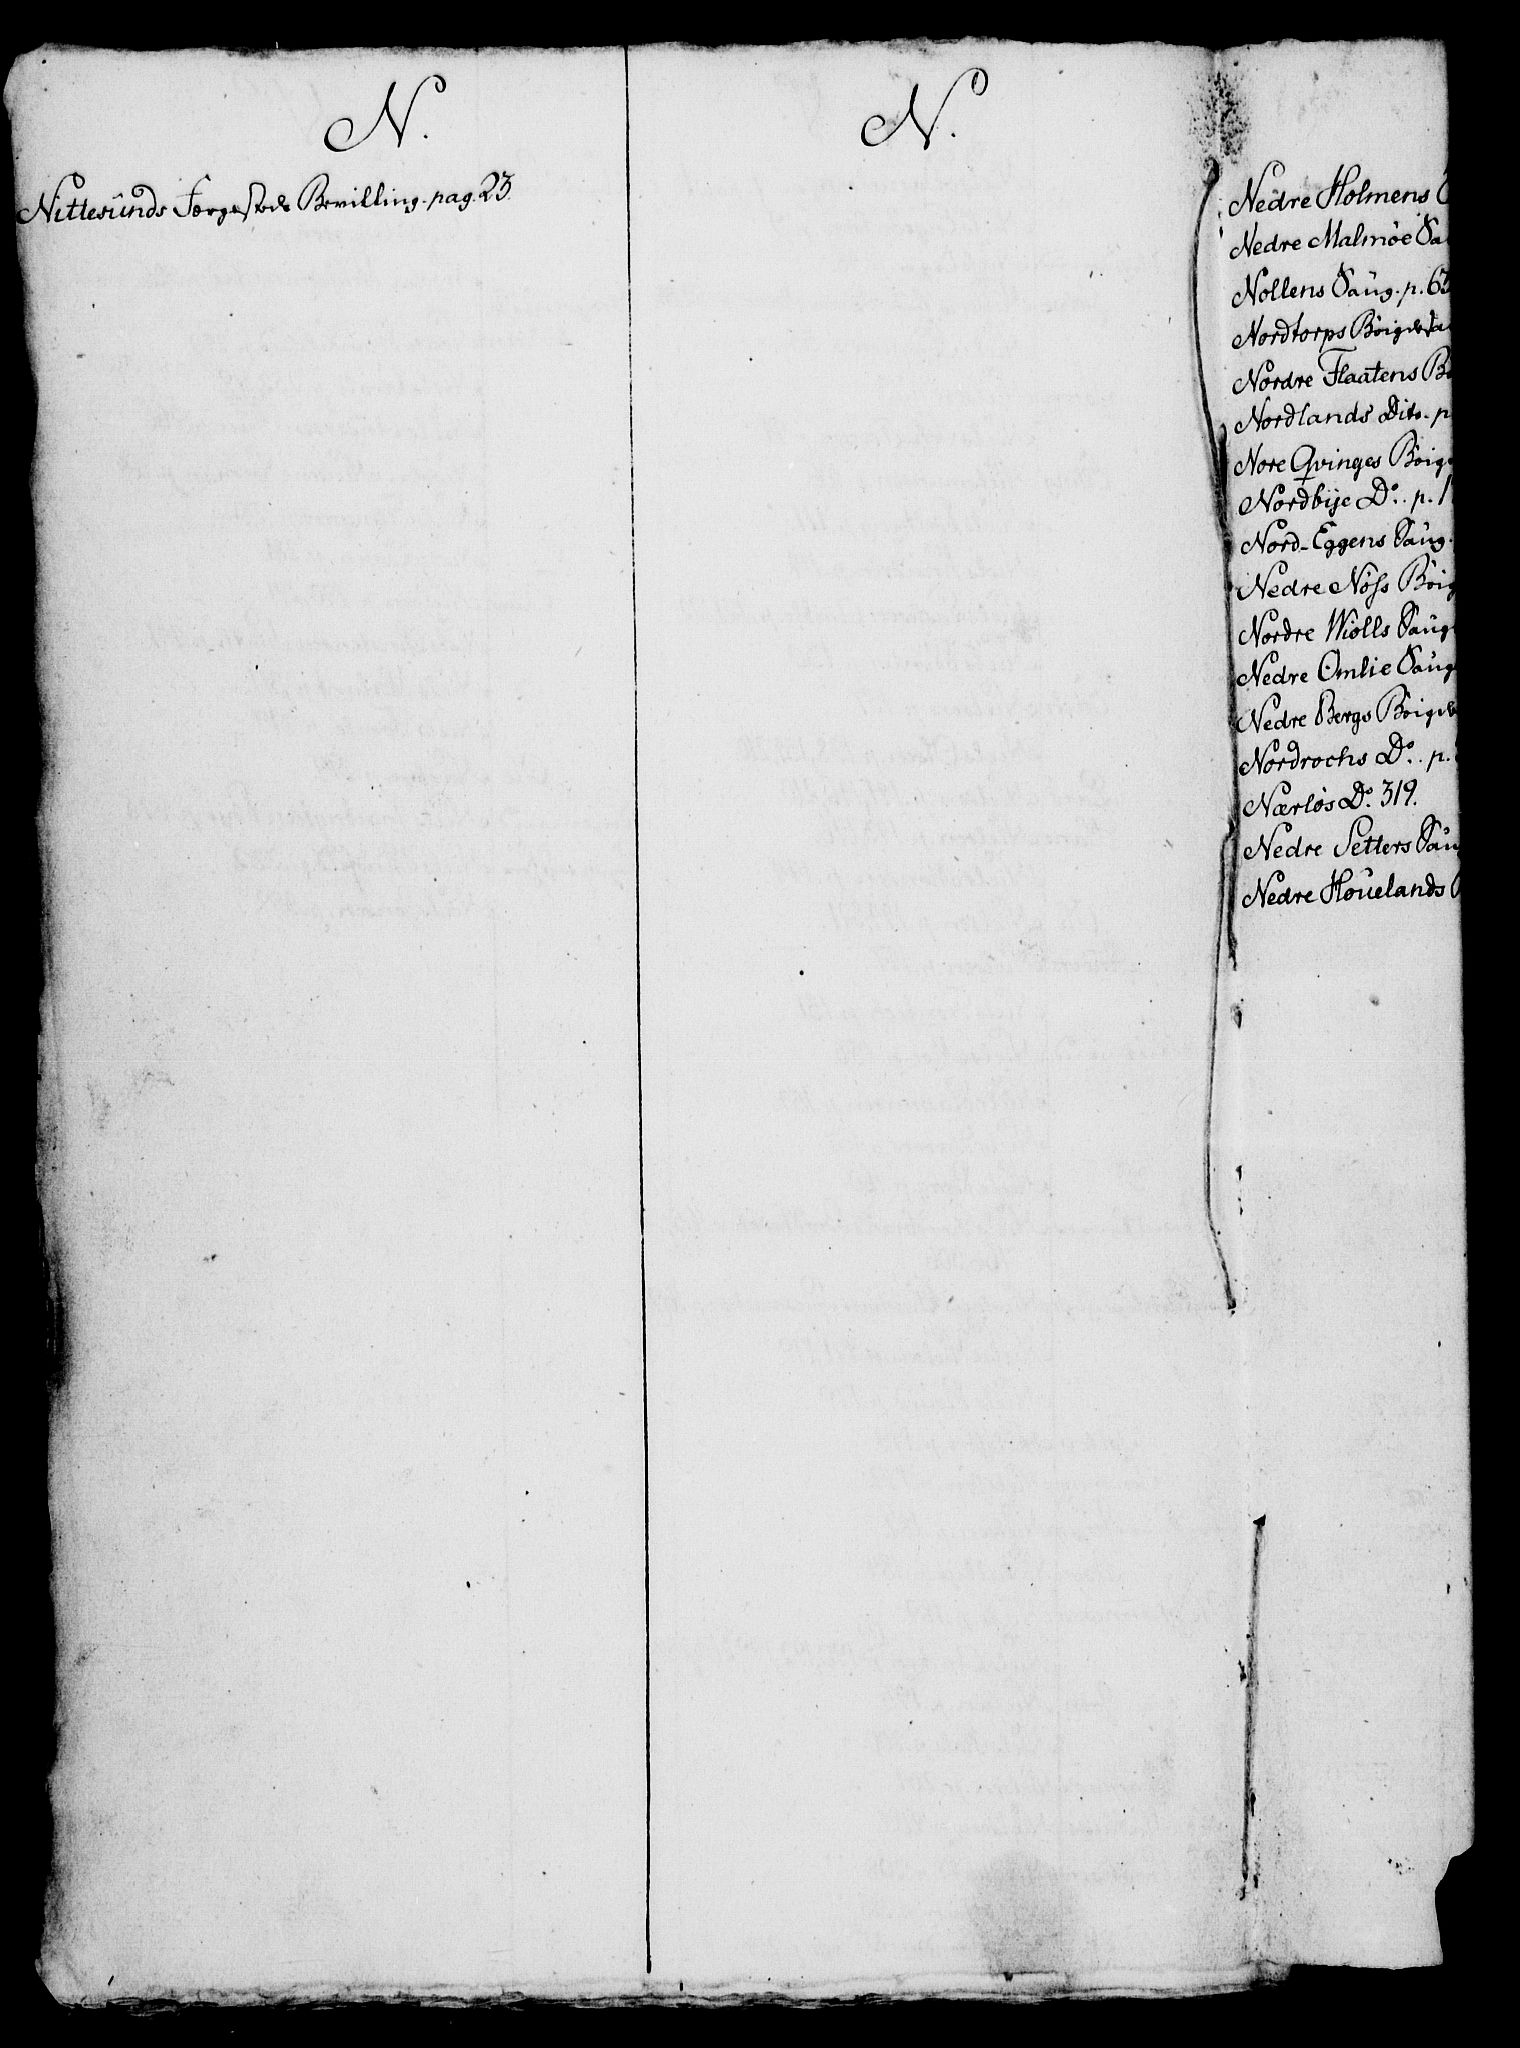 N.
Nittesunds Færgesteds Bevilling. pag. 23.
N.
Nedre Holmens
Nedre Malmöe Sa
Nollens Saug. p. 63
Nordtorps Böigdesa
Nordre Flaatens B
Nordlands Dito. p
Nore Qvinges Böig
Nordbye Do. p. 1
Nord-Eggens Saug.
Nedre Nöss Böig
Nordre Wiölls Saug
Nedre Omlie Saug
Nedre Bergs Böigd
Nordrochs Do. p.
Nærlös Do. 319.
Nedre Setters Sau
Nedre Houelands